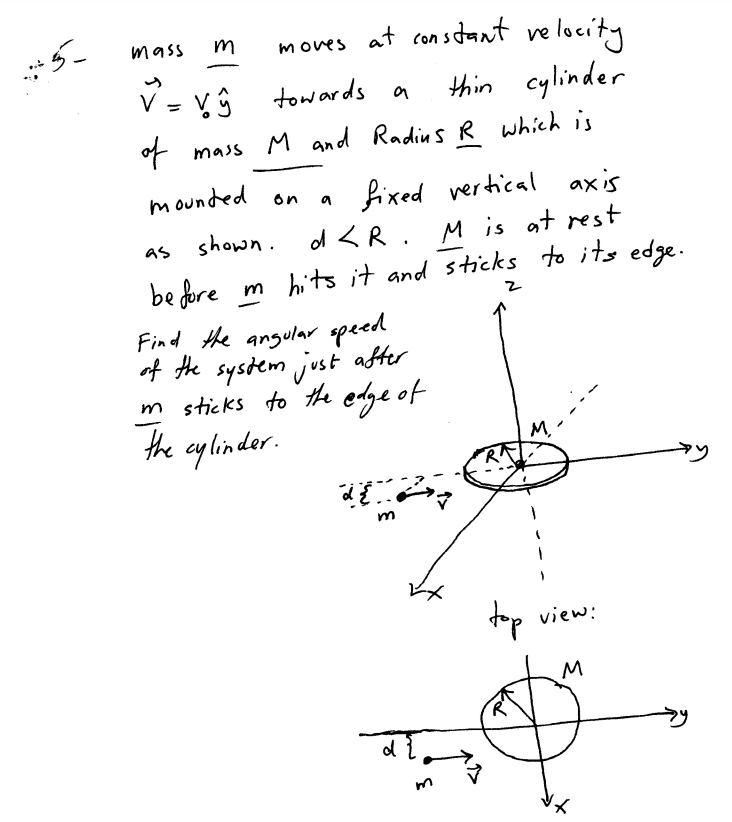 5- mass m moves at constant velocity
V⃗ = V₀ŷ towards a thin cylinder
of mass M and Radius R which is
mounted on a fixed vertical axis
as shown. d < R. M is at rest
before m hits it and sticks to its edge.
Find the angular speed
of the system just after
m sticks to the edge of
the cylinder.
z
M
R
y
d {
m
V⃗
x
top view:
M
R
y
d {
m
V⃗
x